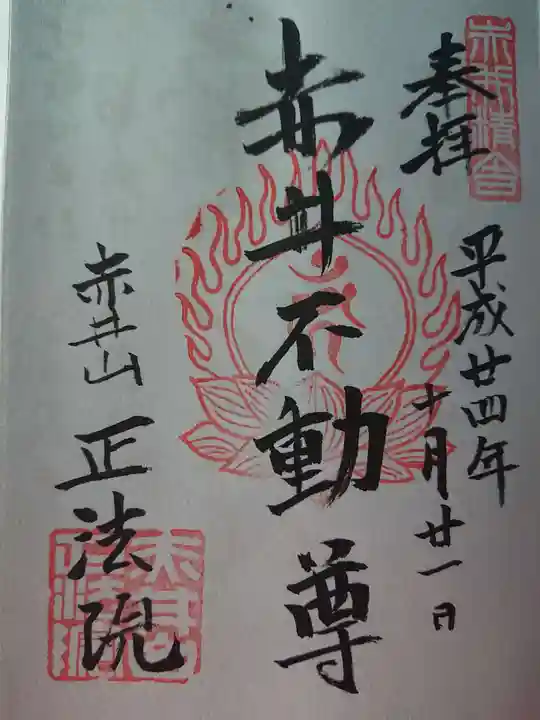 奉拝
平成廿四年
十月廿一日
赤井不動尊
赤井山 正法院